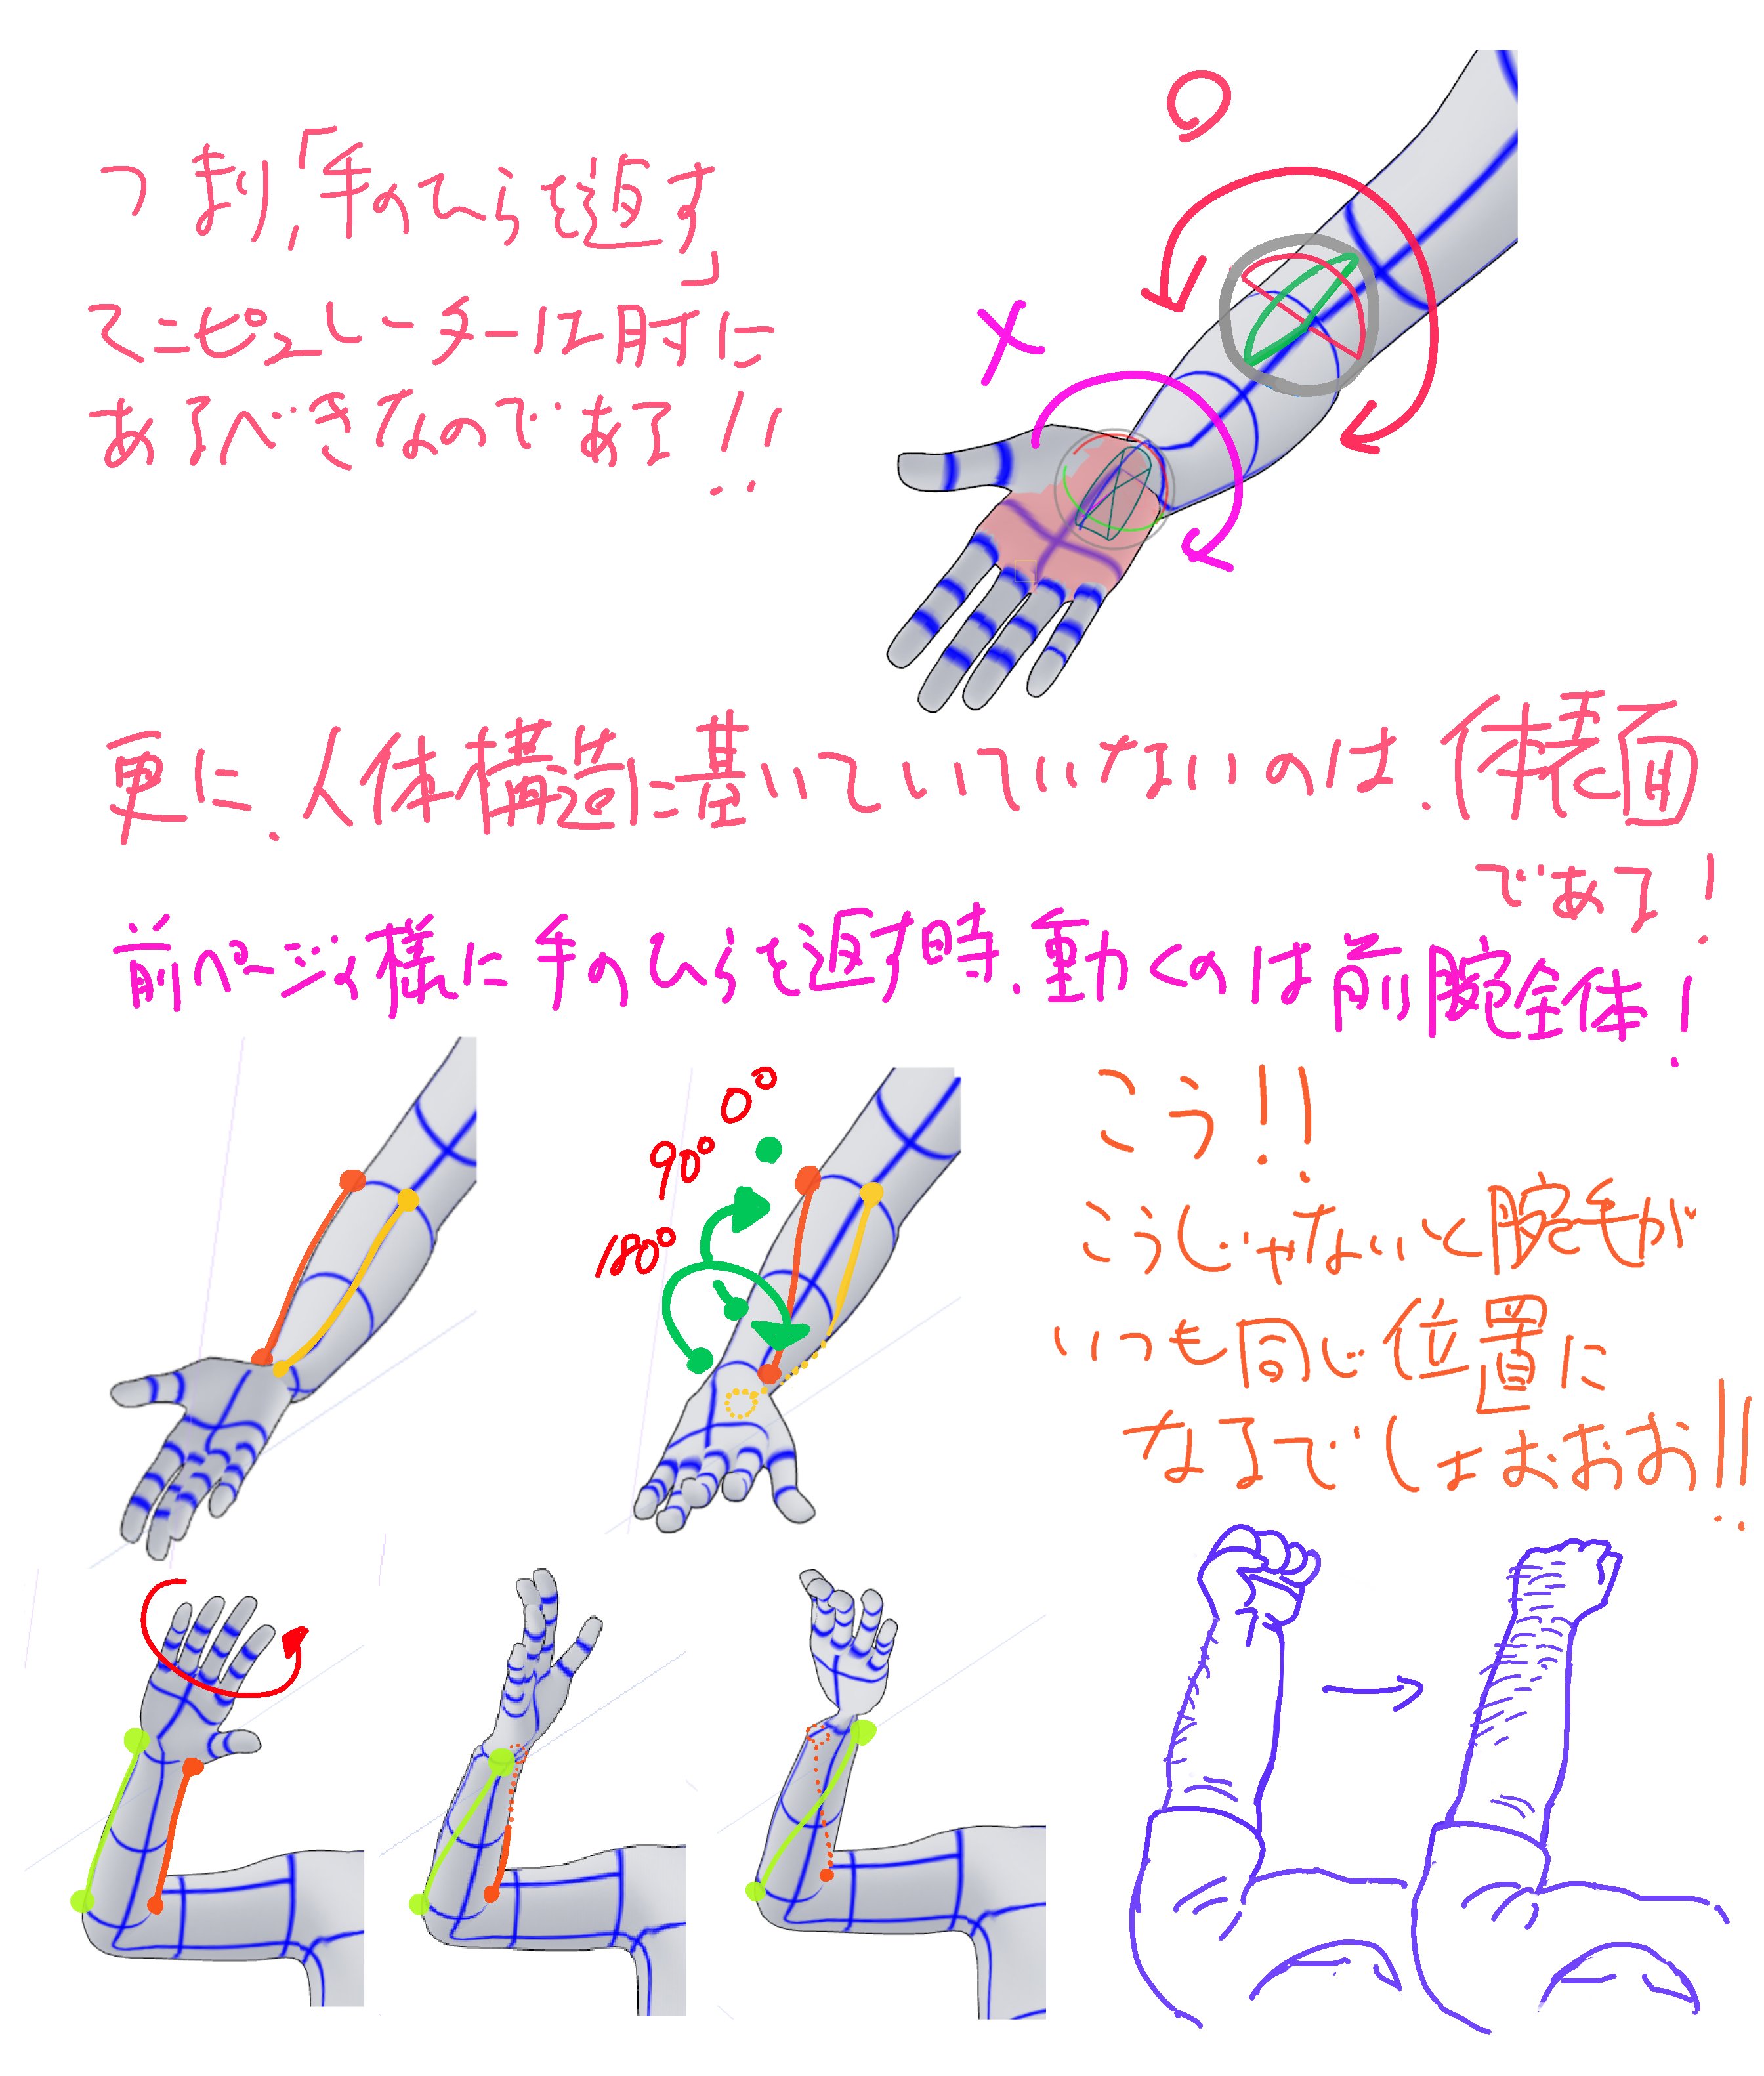 つまり、「手のひらを返す」
マニピュレーターは肘に
あるべきなのである!!
○
×
更に、人体構造に基いていていないのは、体表面
である!
前ページの様に手のひらを返す時、動くのは前腕全体!
0°
90°
180°
こう!!
こうじゃないと腕毛が
いつも同じ位置に
なるでしょおおお!!